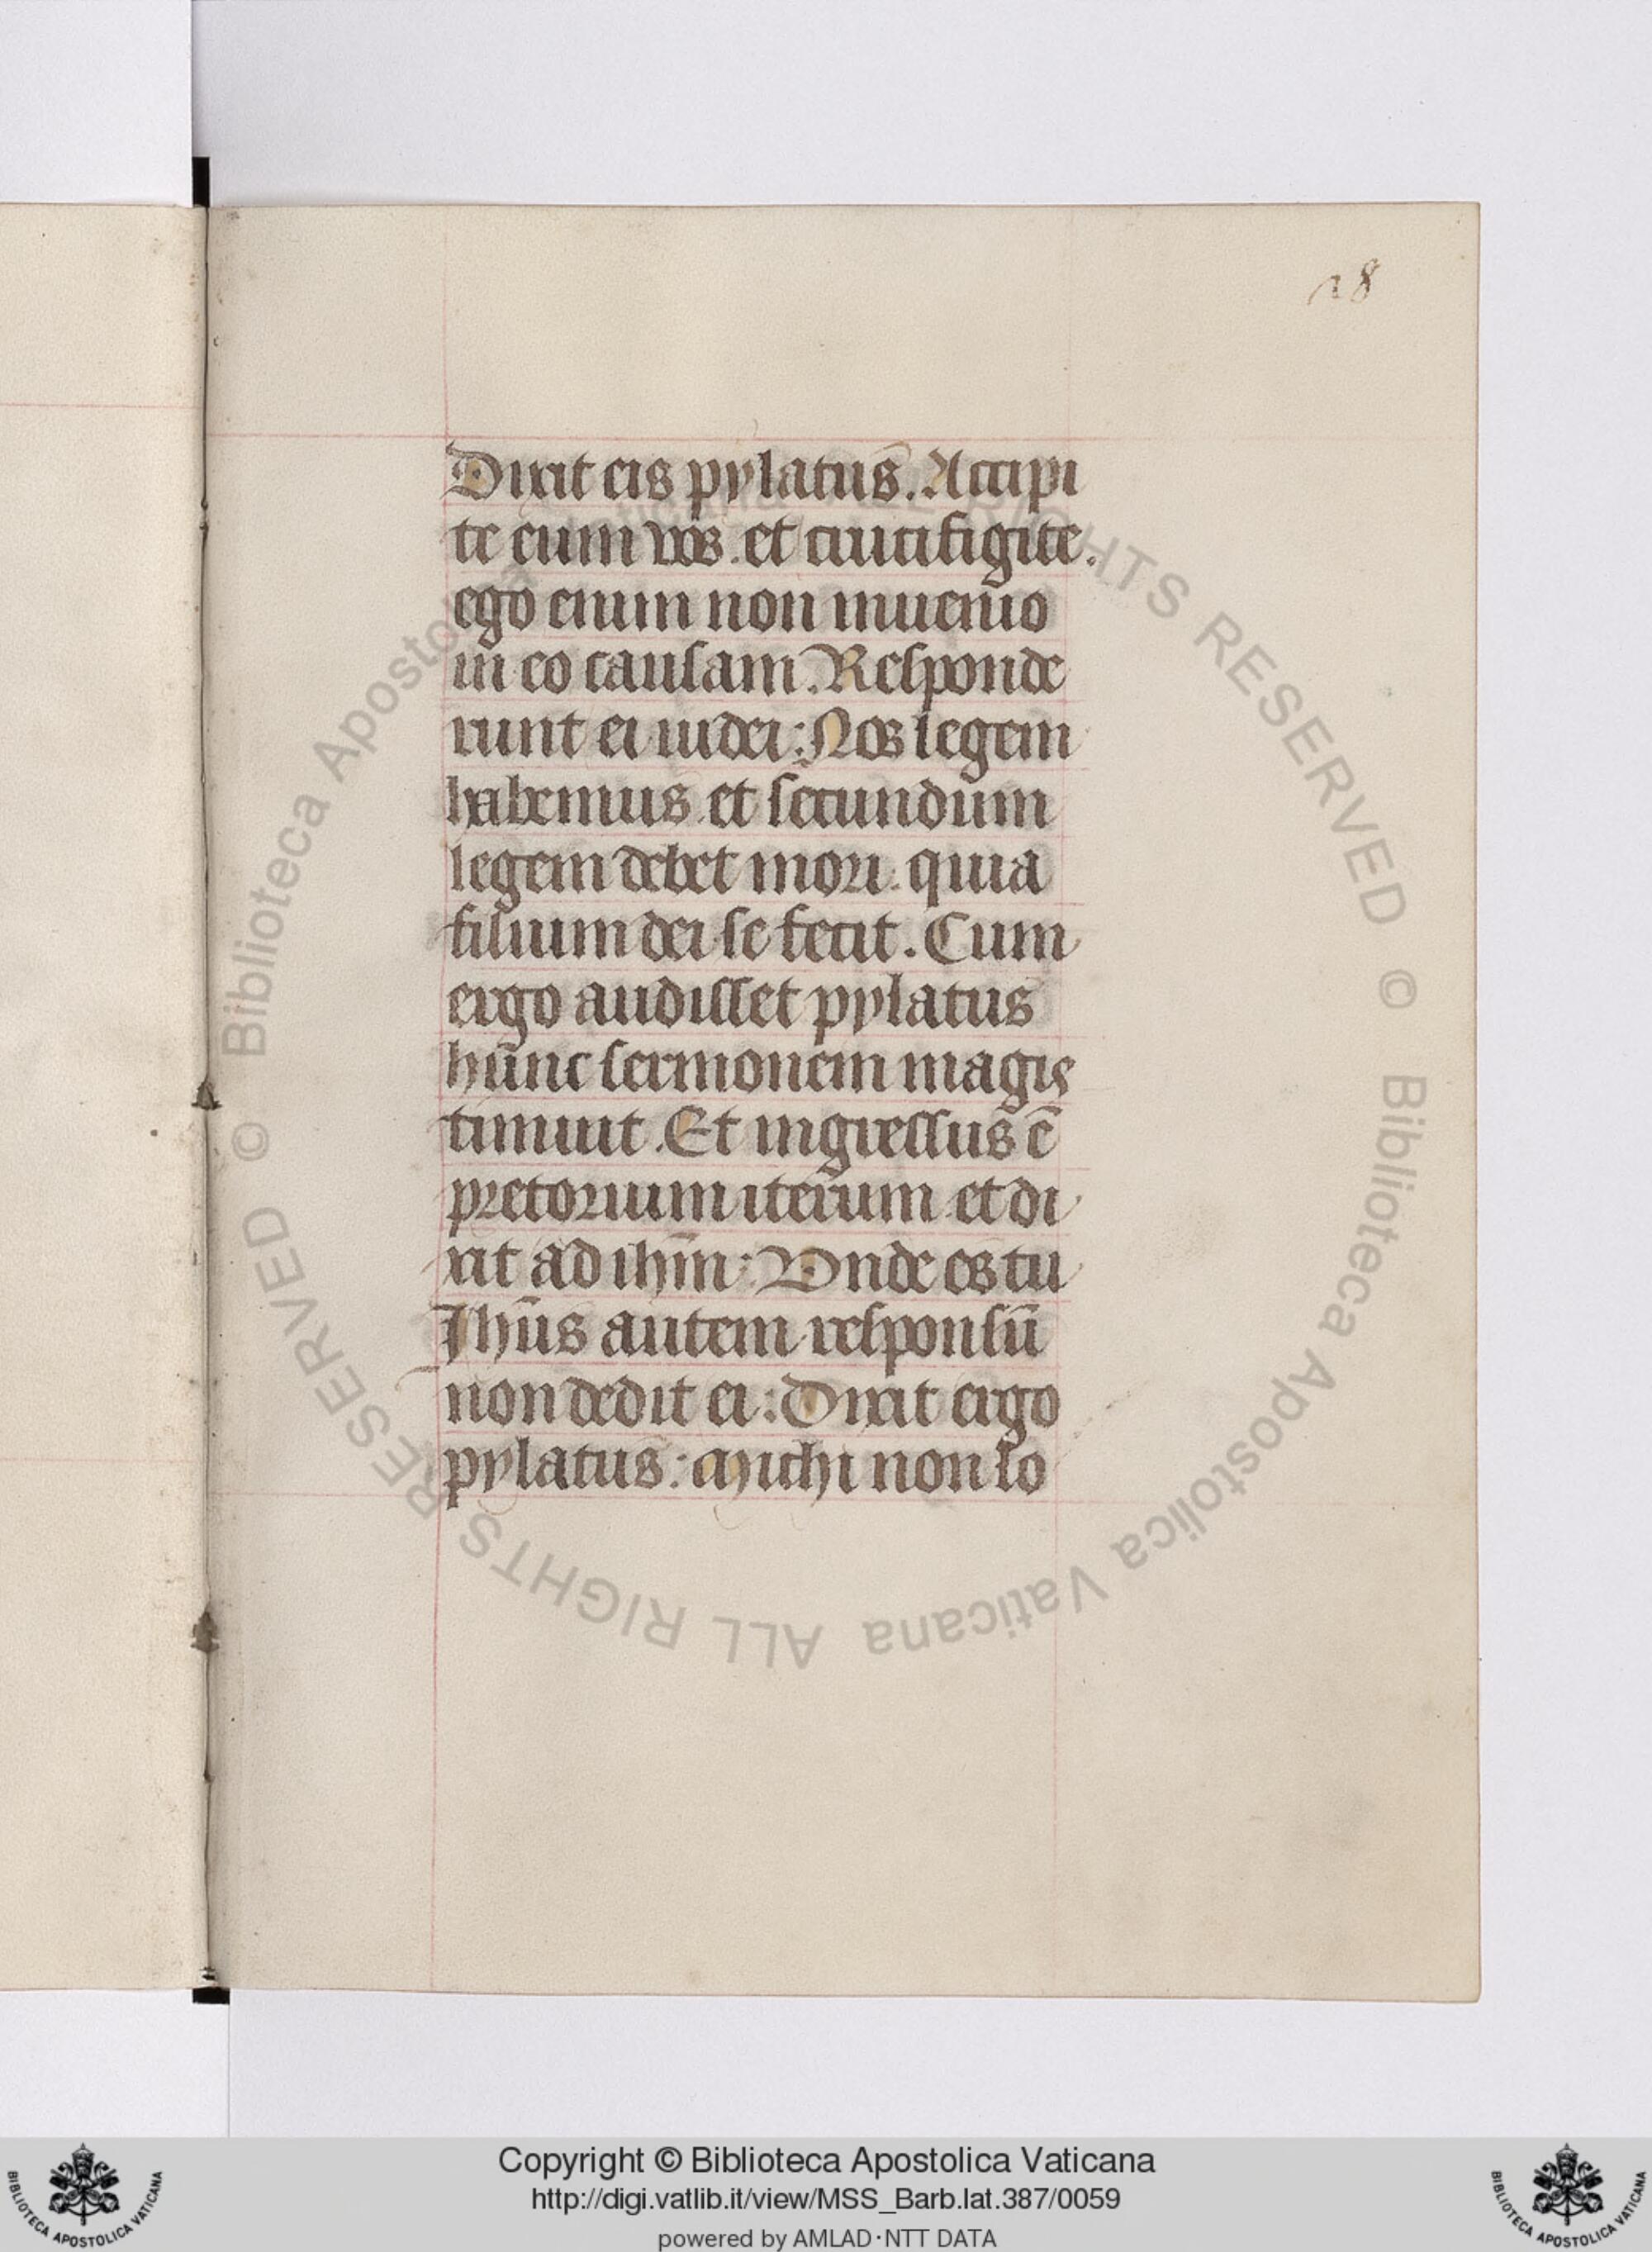 28
Dixit eis pylatus. Accipi
te eum vos. et crucifigite.
ego enim non inuenio
in eo causam. Responde
runt ei iudei: Nos legem
habemus. et secundum
legem debet mori. quia
filium dei se fecit. Cum
ergo audisset pylatus
hunc sermonem magis
timuit. Et ingressus ē
pretorium iterum. et di
xit ad ihm̄: Vnde es tu
Ihūs autem responsū
non dedit ei: Dixit ergo
pylatus: Michi non lo
© Biblioteca Apostolica Vaticana ALL RIGHTS RESERVED © Biblioteca Apostolica Vaticana ALL RIGHTS RESERVED
Copyright © Biblioteca Apostolica Vaticana
http://digi.vatlib.it/view/MSS_Barb.lat.387/0059
powered by AMLAD·NTT DATA
BIBLIOTECA APOSTOLICA VATICANA
BIBLIOTECA APOSTOLICA VATICANA